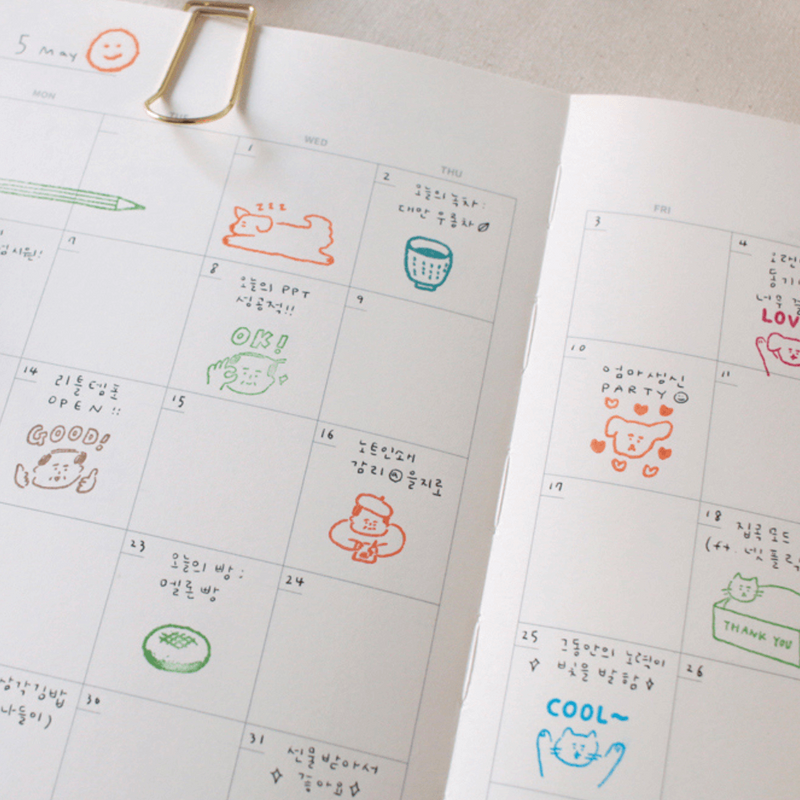 5 May
MON
WED
THU
1
zzz
2
오늘의 녹차:
대만 우롱차
7
8
오늘의 PPT
성공적!!
OK!
9
14
리틀템포
OPEN !!
GOOD!
15
16
노트인쇄
감리@을지로
23
오늘의 빵:
멜론빵
24
삼각김밥
나들이)
30
31
선물받아서
좋아요
FRI
3
4
LOV
10
엄마생신
PARTY
11
17
18
집중모드
(ft. 넷플릭
THANK YOU
25
그동안의 노력이
빛을 발함
COOL~
26